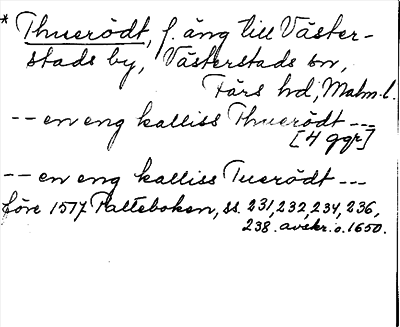 * Thuerödt, f. äng till Väster-
stads by, Västerstads sn,
Färs hd, Malm. l.
-- en eng kalliss Thuerödt ---
[4 ggr]
-- en eng kalliss Tuerödt ---
före 1517 Palteboken, ss. 231, 232, 234, 236,
238. avskr. o. 1650.